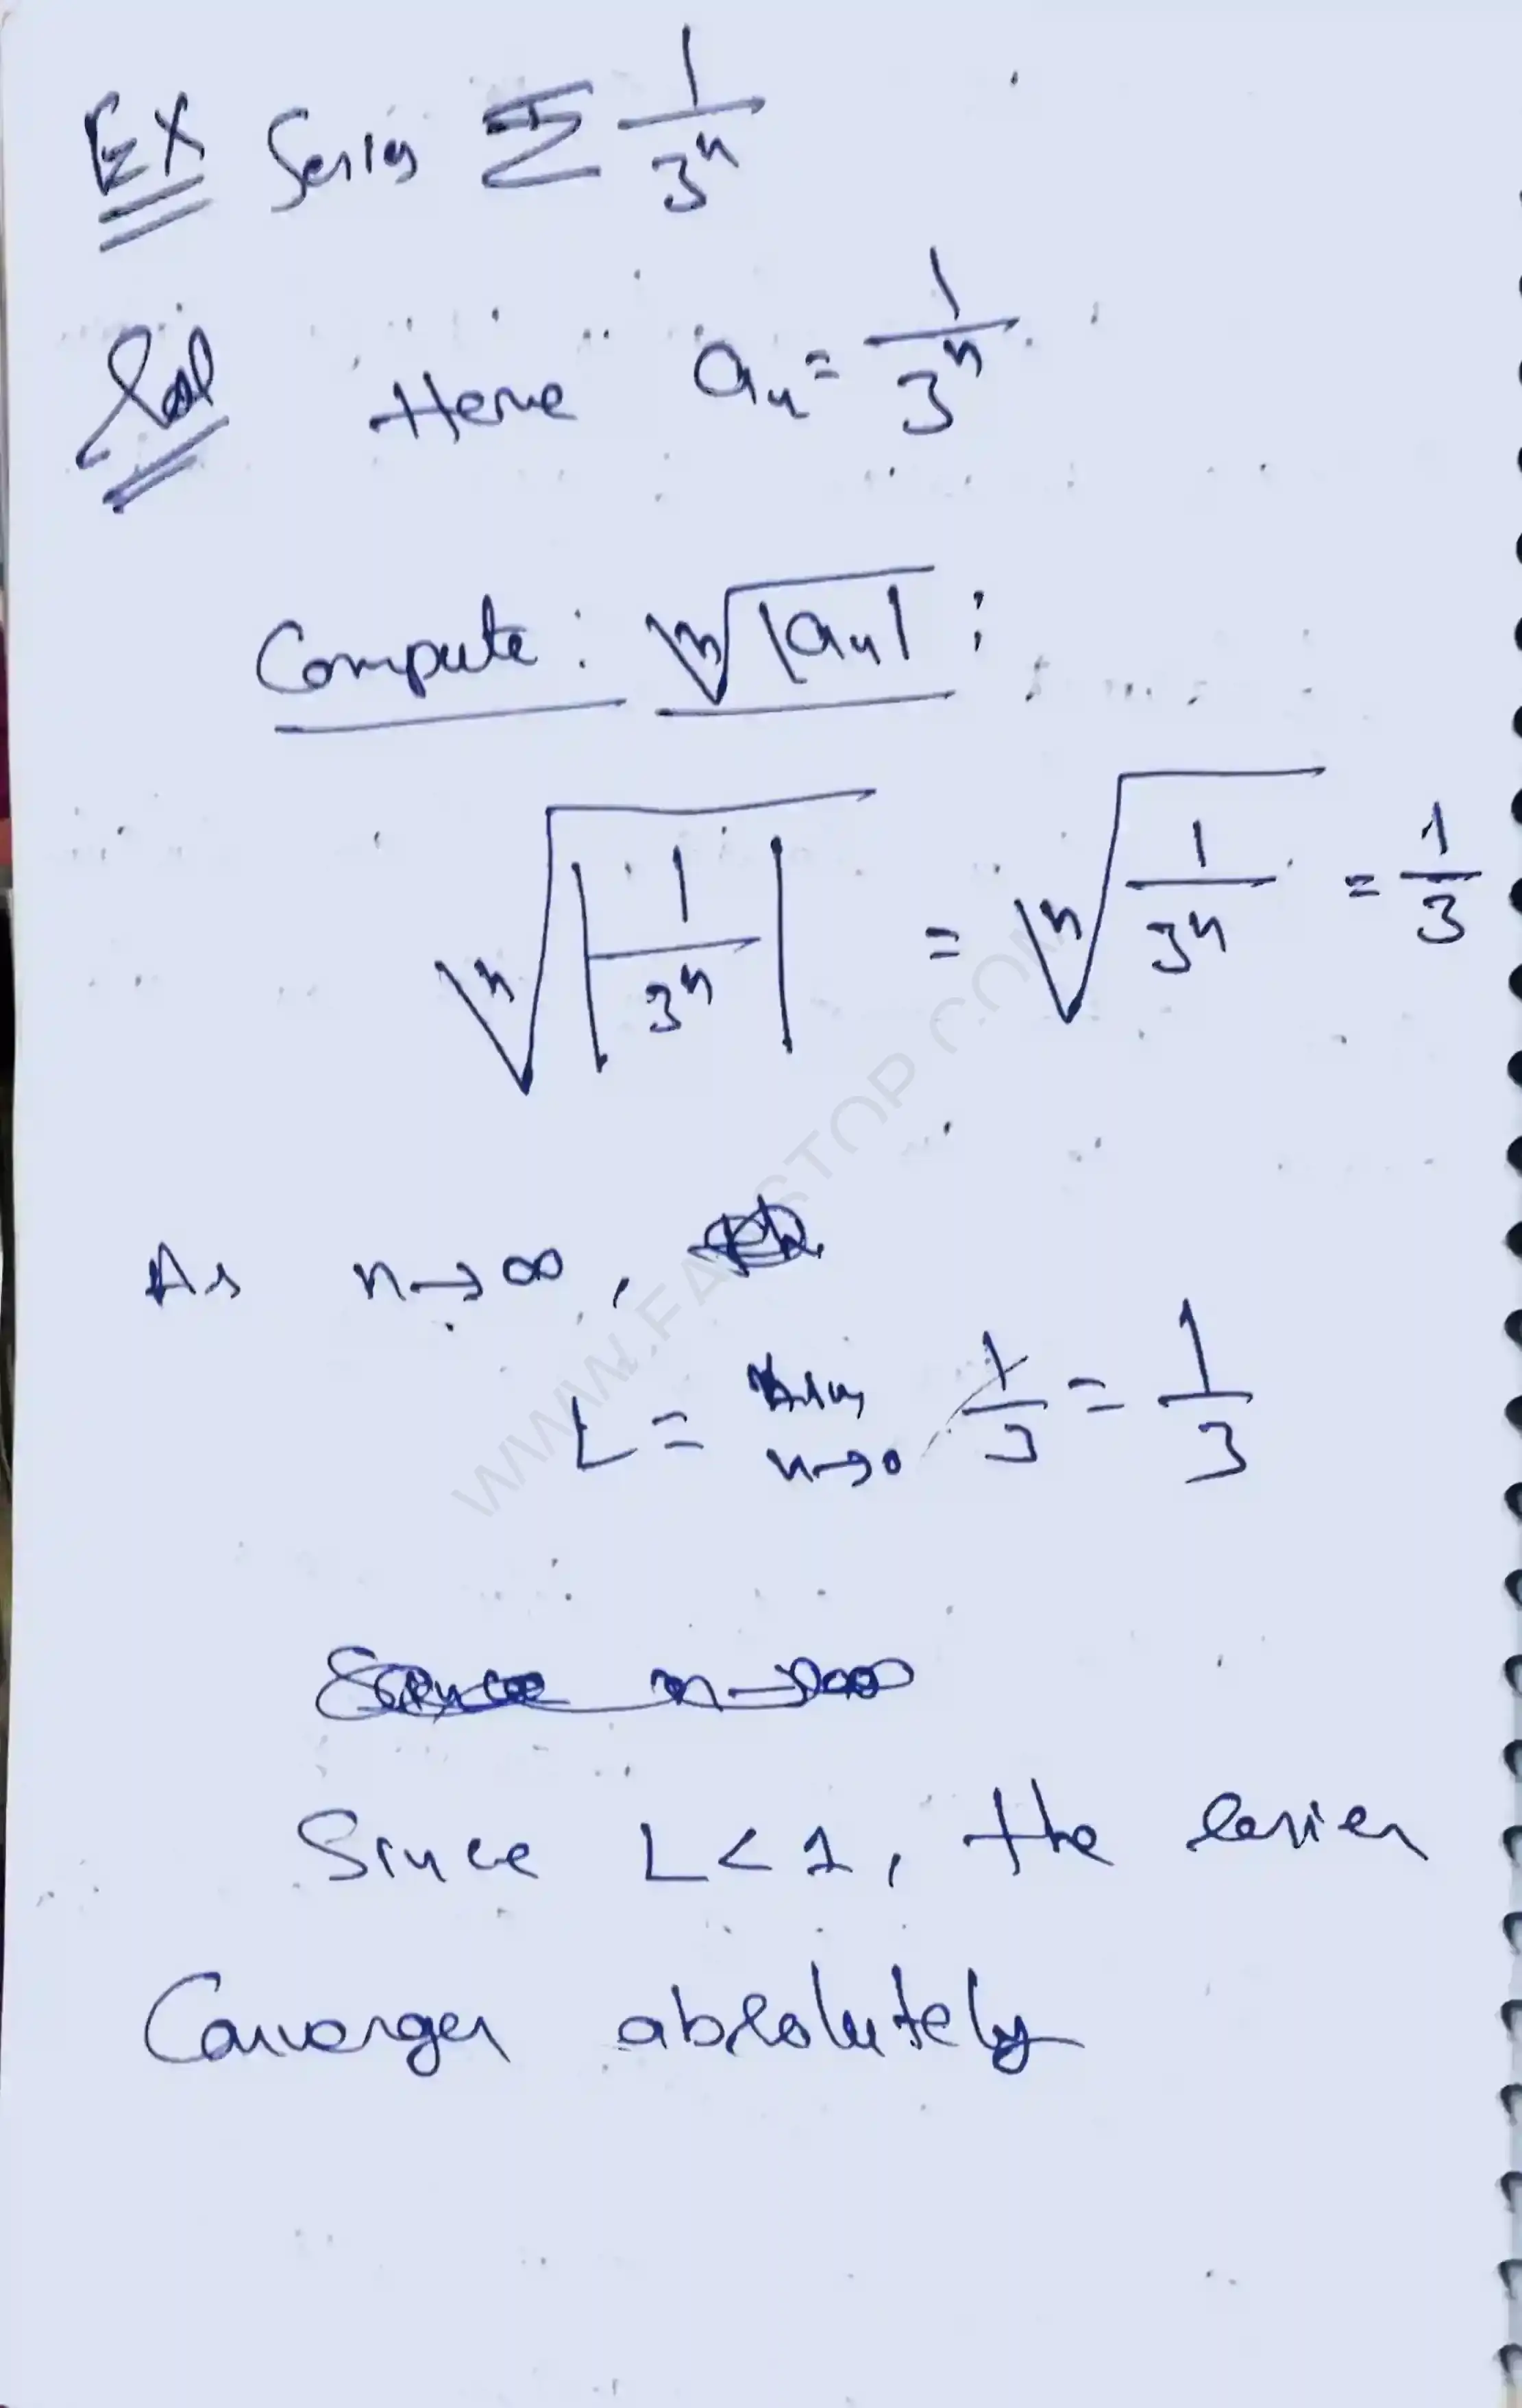 EX Series Σ 1/3ⁿ
Sol Here aₙ = 1/3ⁿ
Compute : ⁿ√|aₙ| :
ⁿ√|1/3ⁿ| = ⁿ√(1/3ⁿ) = 1/3
As n→∞,
L = lim n→0 1/3 = 1/3
Since L<1, the series
Converges absolutely